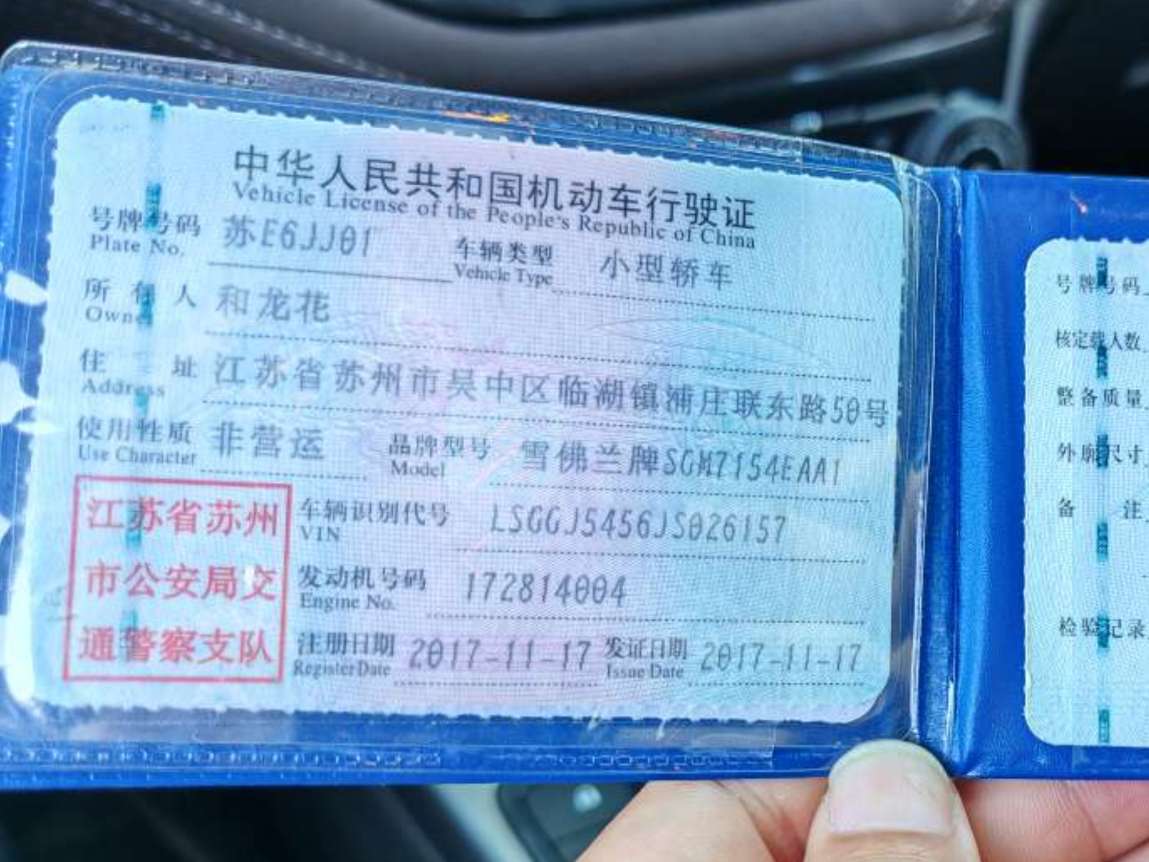 中华人民共和国机动车行驶证
Vehicle License of the People's Republic of China
号牌号码 苏E6JJ01 车辆类型 小型轿车
Plate No. Vehicle Type
所有人 和龙花
Owner
住址 江苏省苏州市吴中区临湖镇浦庄联东路50号
Address
使用性质 非营运 品牌型号 雪佛兰牌SGM7154EAA1
Use Character Model
江苏省苏州
市公安局交
通警察支队
车辆识别代号 LSGGJ5456JS026157
VIN
发动机号码 172814004
Engine No.
注册日期 2017-11-17 发证日期 2017-11-17
Register Date Issue Date
号牌号码
核定载人数
整备质量
外廓尺寸
备注
检验记录